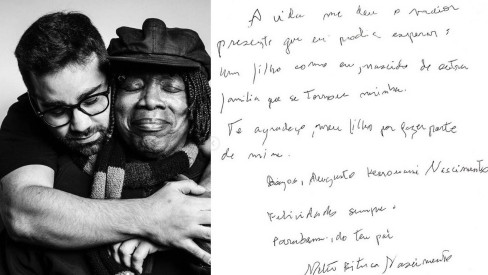 A vida me deu o maior
presente que eu podia esperar:
um filho como eu, nascido de outra
família que se tornou minha.
Te agradeço, meu filho por fazer parte
de mim.
Augusto Nascimento
Felicidade sempre.
Parabéns, do teu pai
Milton Bituca Nascimento